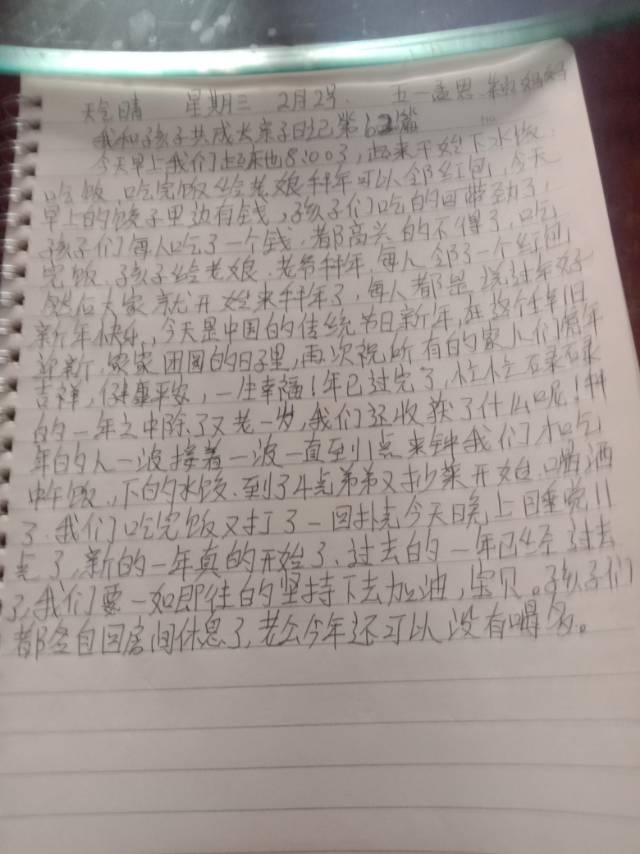 天气晴 星期三 2月2号. 五一孟思 妈妈好
我和孩子共成长亲子日记第62篇
今天早上我们起床也8:00了,起来开始下水饺.
吃饭.吃完饭给老娘拜年可以领红包,今天
早上的饺子里边有钱,孩子们吃的可带劲了,
孩子们每人吃了一个钱.都高兴的不得了,吃
完饭.孩子给老娘.老爷拜年.每人领了一个红包
然后大家就开始来拜年了,每人都是说过年好
新年快乐,今天是中国的传统节日新年,在这个辞旧
迎新,家家团圆的日子里,再次祝所有的家人们虎年
吉祥,健康平安,一生幸福!年已过完了,忙忙碌碌
的一年之中除了又老一岁,我们还收获了什么呢!拜
年的人一波接着一波一直到11点来钟我们才吃
中午饭,下的水饺.到了4点弟弟又抄菜开始喝酒
了.我们吃完饭又打了一回扑克今天晚上睡觉11
点了,新的一年真的开始了,过去的一年已经过去
了,我们要一如即往的坚持下去加油,宝贝。孩子们
都各自回房间休息了,老公今年还可以没有喝多。